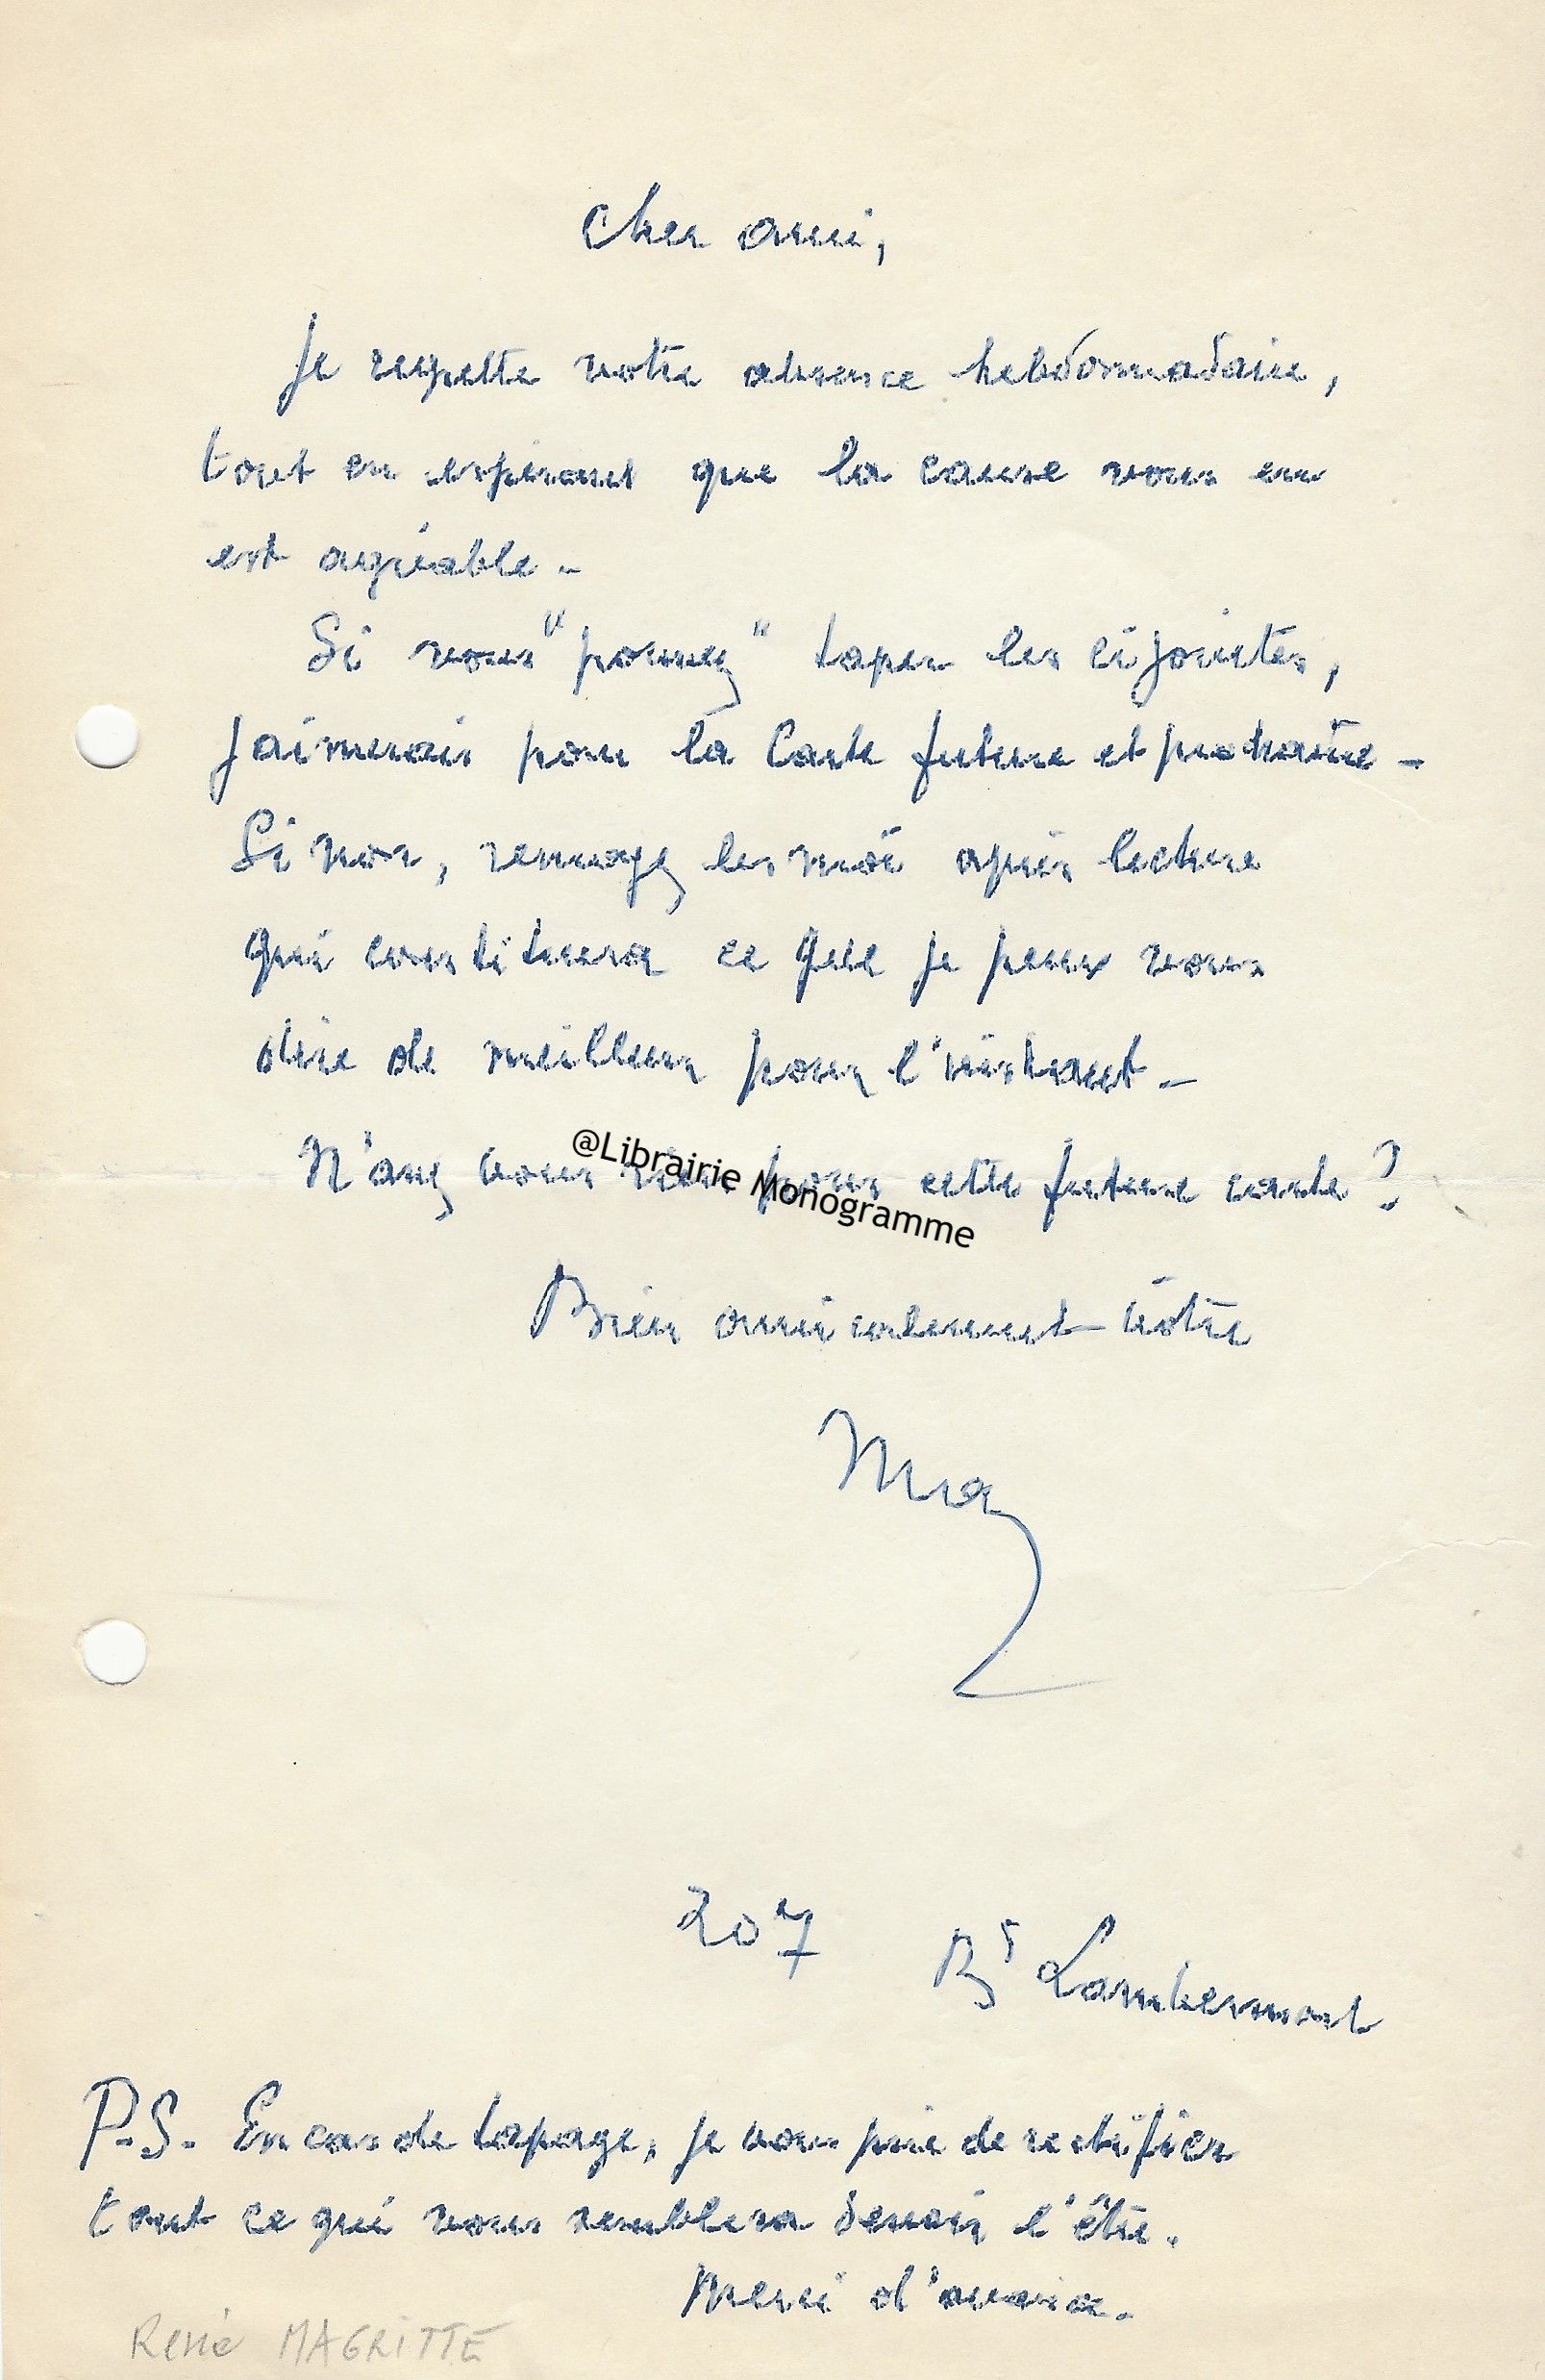 Cher ami,
Je regrette votre absence hebdomadaire,
tout en espérant que la cause vous en
est agréable -
Si vous "pouvez" taper les ci jointes,
j'aimerais pour la Carte future et prochaine -
Si non, renvoyez les moi après lecture
qui constituera ce que je peux vous
dire de meilleur pour l'instant -
N'avez vous rien pour cette future carte ?
@Librairie Monogramme
Bien amicalement vôtre
Mag
207 Bd Lambermont
P.S. En cas de tapage, je vous prie de rectifier
tout ce qui vous semblera devoir l'être.
Merci d'avance.
René MAGRITTE